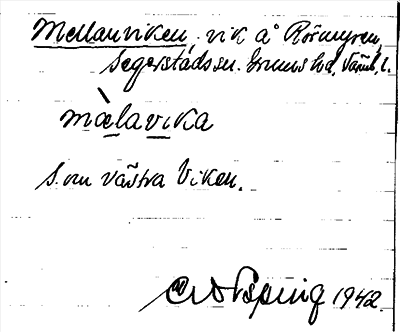 Mellanviken, vik å Rörmyren,
Segerstads sn. Grums hd, Värml. l.
màlavika
S. om västra Viken.
1942.